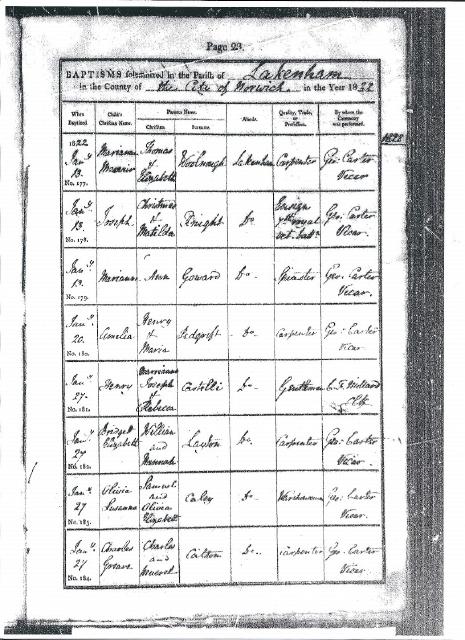 Page 23.
BAPTISMS solemnized in the Parish of Lakenham
in the County of the City of Norwich in the Year 1822
When Baptized. Child's Christian Name. Parents Name. Christian Surname. Abode. Quality, Trade, or Profession. By whom the Ceremony was performed.
1822
1822
Jany 13. Thomas & Elizabeth Woolnough Lakenham Carpenter Geo: Carter Vicar
No. 177.
Jany 13. Joseph Christmas & Matilda Knight Do Ensign Geo: Carter Vicar.
No. 178.
Jany 13. Marianne Ann Goward Do Spinster Geo: Carter Vicar.
No. 179.
Jany 20. Amelia Henry & Maria Do Carpenter Geo: Carter Vicar
No. 180.
Jany 27. Henry Joseph & Rebecca Costelli Do Gentleman
No. 181.
Jany 27 Bridget Elizabeth William and Hannah Layton Do. Carpenter Geo: Carter Vicar.
No. 182.
Jany 27 Olivia Susanna Samuel and Olivia Elizabeth Caley Do Geo: Carter Vicar.
No. 183.
Jany 27 Charles Charles and Catton Do. Carpenter Geo: Carter Vicar.
No. 184.